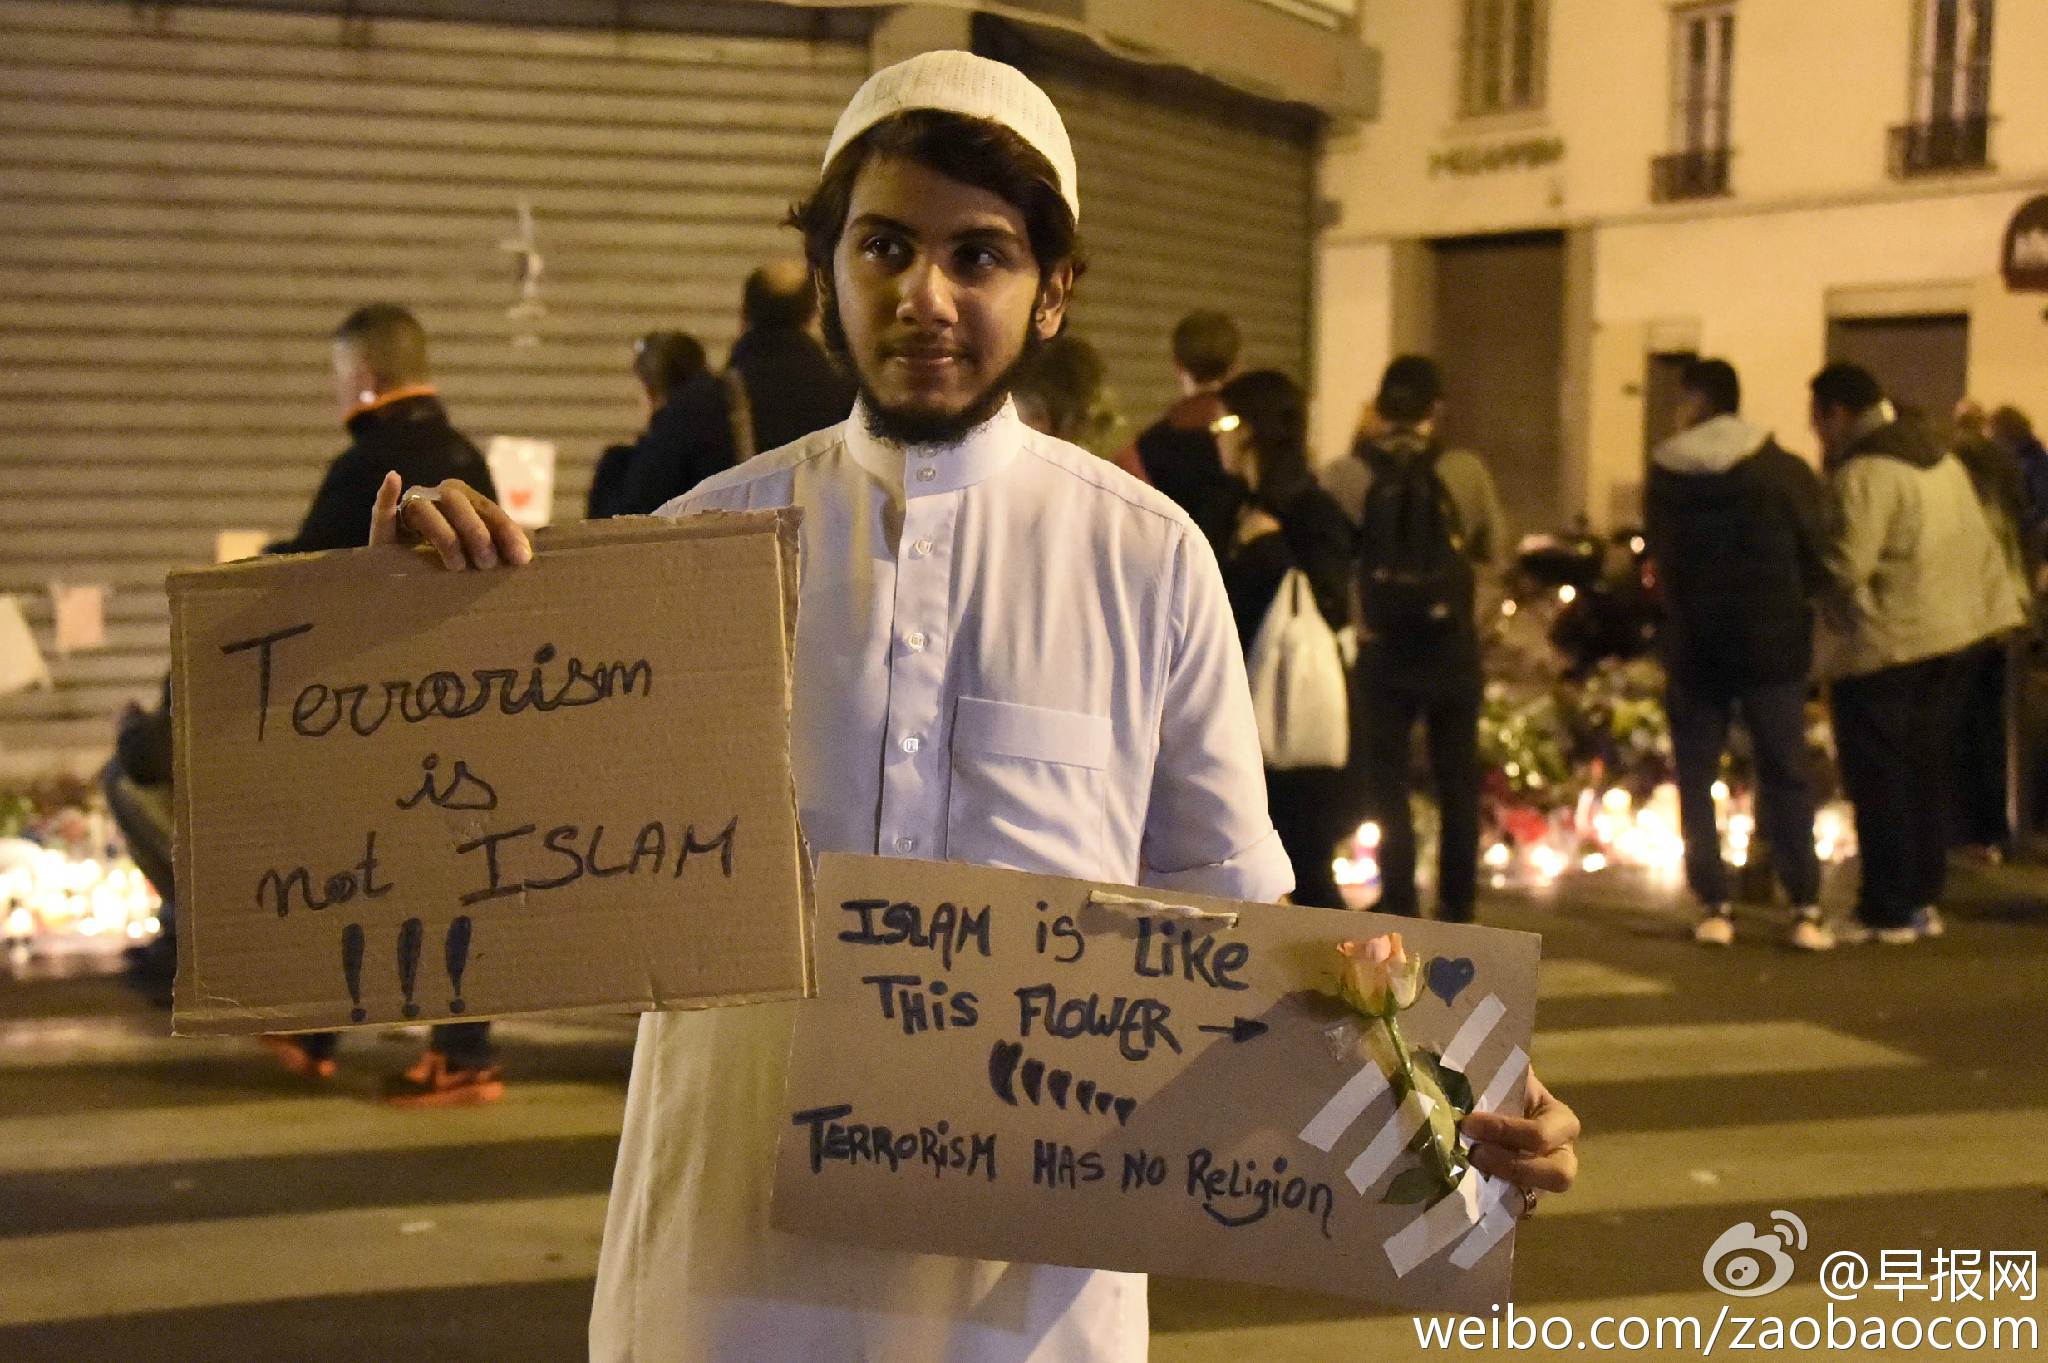 Terrorism
is
not ISLAM
!!!
ISLAM is Like
THis FLOWER →
TERRORiSM HAS NO ReLigiON
@早报网
weibo.com/zaobaocom